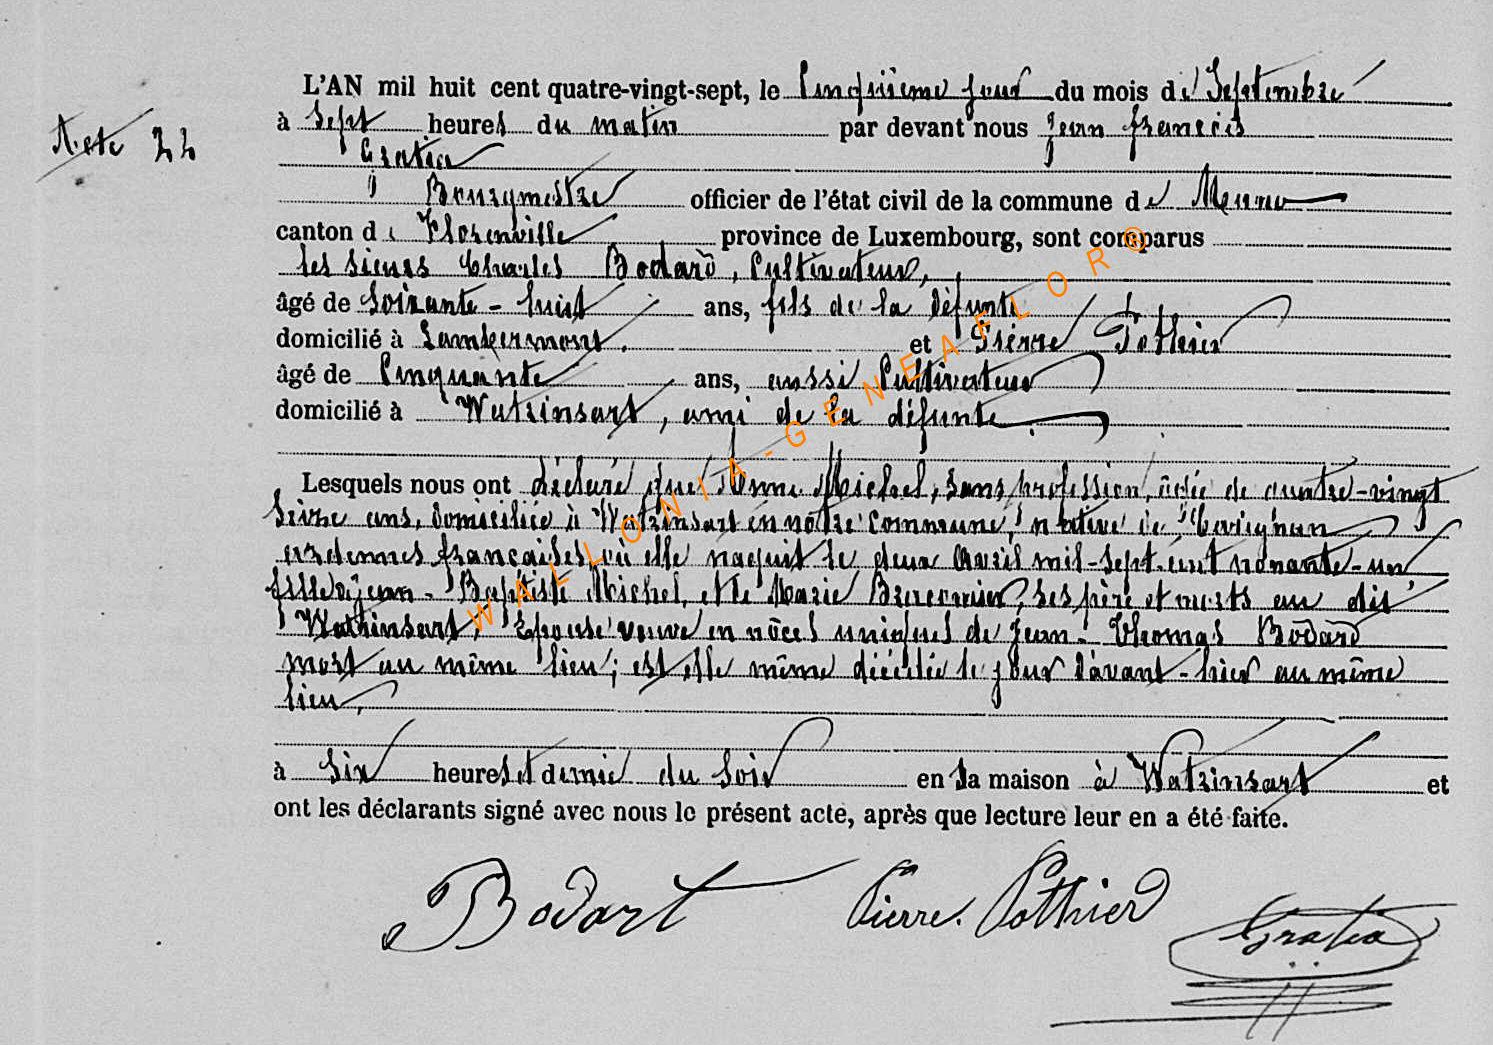 L'AN mil huit cent quatre-vingt-sept, le Cinquième jour du mois de Septembre
Acte 22
à Sept heures du matin par devant nous Jean François
Gratia
Bourgmestre officier de l'état civil de la commune de Muno
canton de Florenville province de Luxembourg, sont comparus
les sieurs Charles Bodard, Cultivateur,
âgé de Soixante-huit ans, fils de la défunte
domicilié à Lambermont. et Pierre Pothier
âgé de Cinquante ans, aussi Cultivateur
domicilié à Watrinsart, ami de la défunte
Lesquels nous ont déclaré que Anne Michel, sans profession, âgée de quatre-vingt
seize ans, domiciliée à Watrinsart en notre commune, native de Carignan
ardennes françaises où elle naquit le deux Avril mil-sept-cent nonante-un
fille de Jean-Baptiste Michel, et de Marie, ses père et morts au dit
Watrinsart, Epouse veuve en nôces uniques de Jean-Thomas Bodard
mort au même lieu; est elle même décédée le jour d'avant-hier au même
lieu,
à Six heures et demie du soir en sa maison à Watrinsart et
ont les déclarants signé avec nous le présent acte, après que lecture leur en a été faite.
Bodart Pierre. Pothier Gratia
WALLONIA-GENEAFLOR®